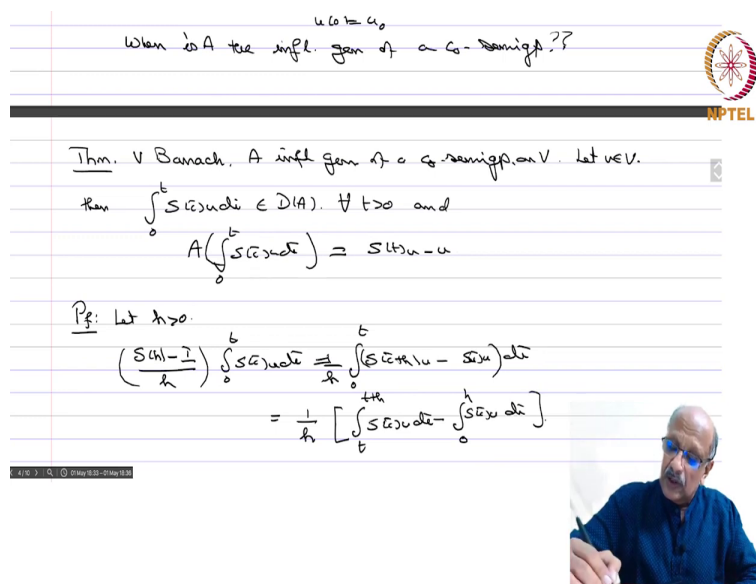 u(0) = u₀
When is A the infl. gen of a c₀-semigp.??
NPTEL
Thm. V Banach, A infl gen of a c₀-semigp. on V. Let u∈V.
then ∫₀ᵗ S(τ)u dτ ∈ D(A). ∀ t>0 and
A(∫₀ᵗ S(τ)u dτ) = S(t)u - u
Pf: Let h>0.
(S(h)-I / h) ∫₀ᵗ S(τ)u dτ = 1/h ∫₀ᵗ (S(τ+h)u - S(τ)u) dτ
= 1/h [∫ₜᵗ⁺ʰ S(τ)u dτ - ∫₀ʰ S(τ)u dτ].
4/10 01 May 18:33 - 01 May 18:36